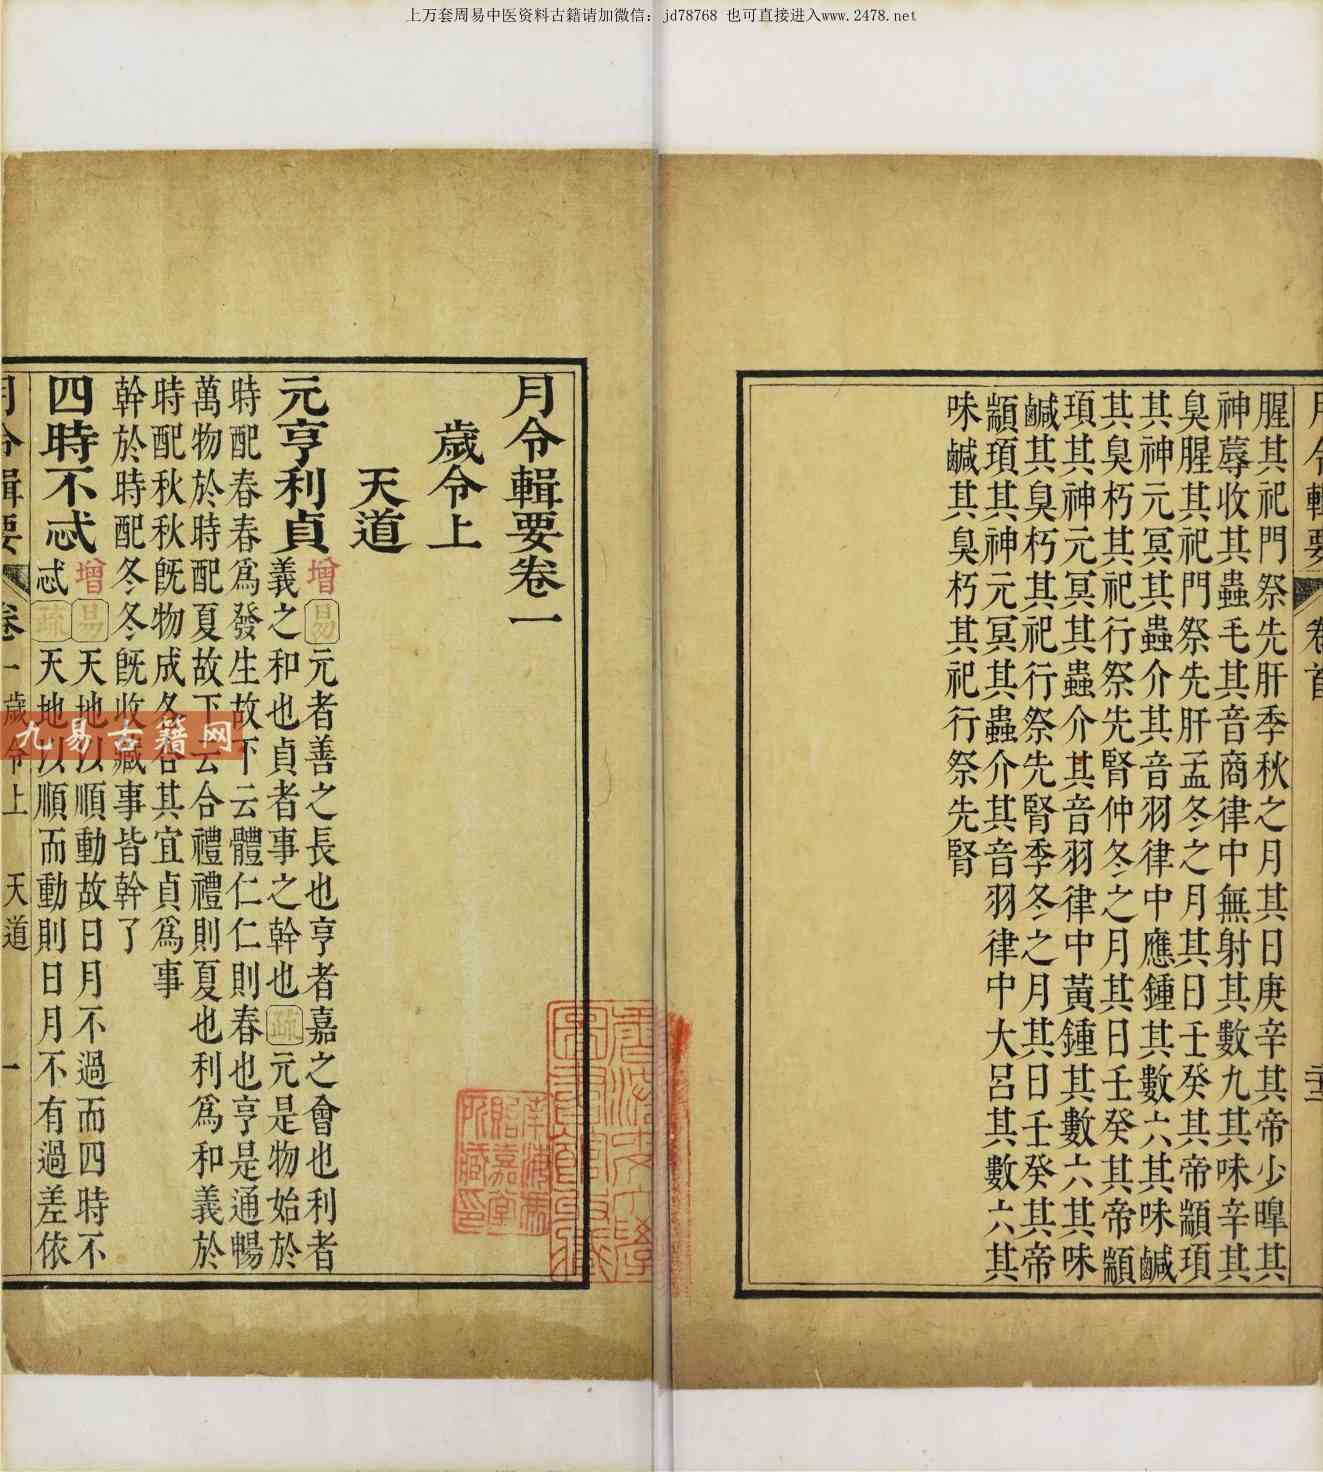 上万套周易中医资料古籍请加微信：jd78768 也可直接进入www.2478.net
月令輯要 卷首
腥其祀門祭先肝季秋之月其日庚辛其帝少暤其
神蓐收其蟲毛其音商律中無射其數九其味辛其
臭腥其祀門祭先肝孟冬之月其日壬癸其帝顓頊
其神元冥其蟲介其音羽律中應鍾其數六其味鹹
其臭朽其祀行祭先腎仲冬之月其日壬癸其帝顓
頊其神元冥其蟲介其音羽律中黃鍾其數六其味
鹹其臭朽其祀行祭先腎季冬之月其日壬癸其帝
顓頊其神元冥其蟲介其音羽律中大呂其數六其
味鹹其臭朽其祀行祭先腎
月令輯要卷一
歲令上
天道
元亨利貞增易元者善之長也亨者嘉之會也利者
義之和也貞者事之幹也疏元是物始於
時配春春為發生故下云體仁仁則春也亨是通暢
萬物於時配夏故下云合禮禮則夏也利為和義於
時配秋秋旣物成各合其宜貞為事
幹於時配冬冬旣收藏事皆幹了
四時不忒增易天地以順動故日月不過而四時不
忒疏天地以順而動則日月不有過差依
月令輯要 卷一 歲令上 天道 一
九易古籍网
南潯劉氏嘉業堂所藏印